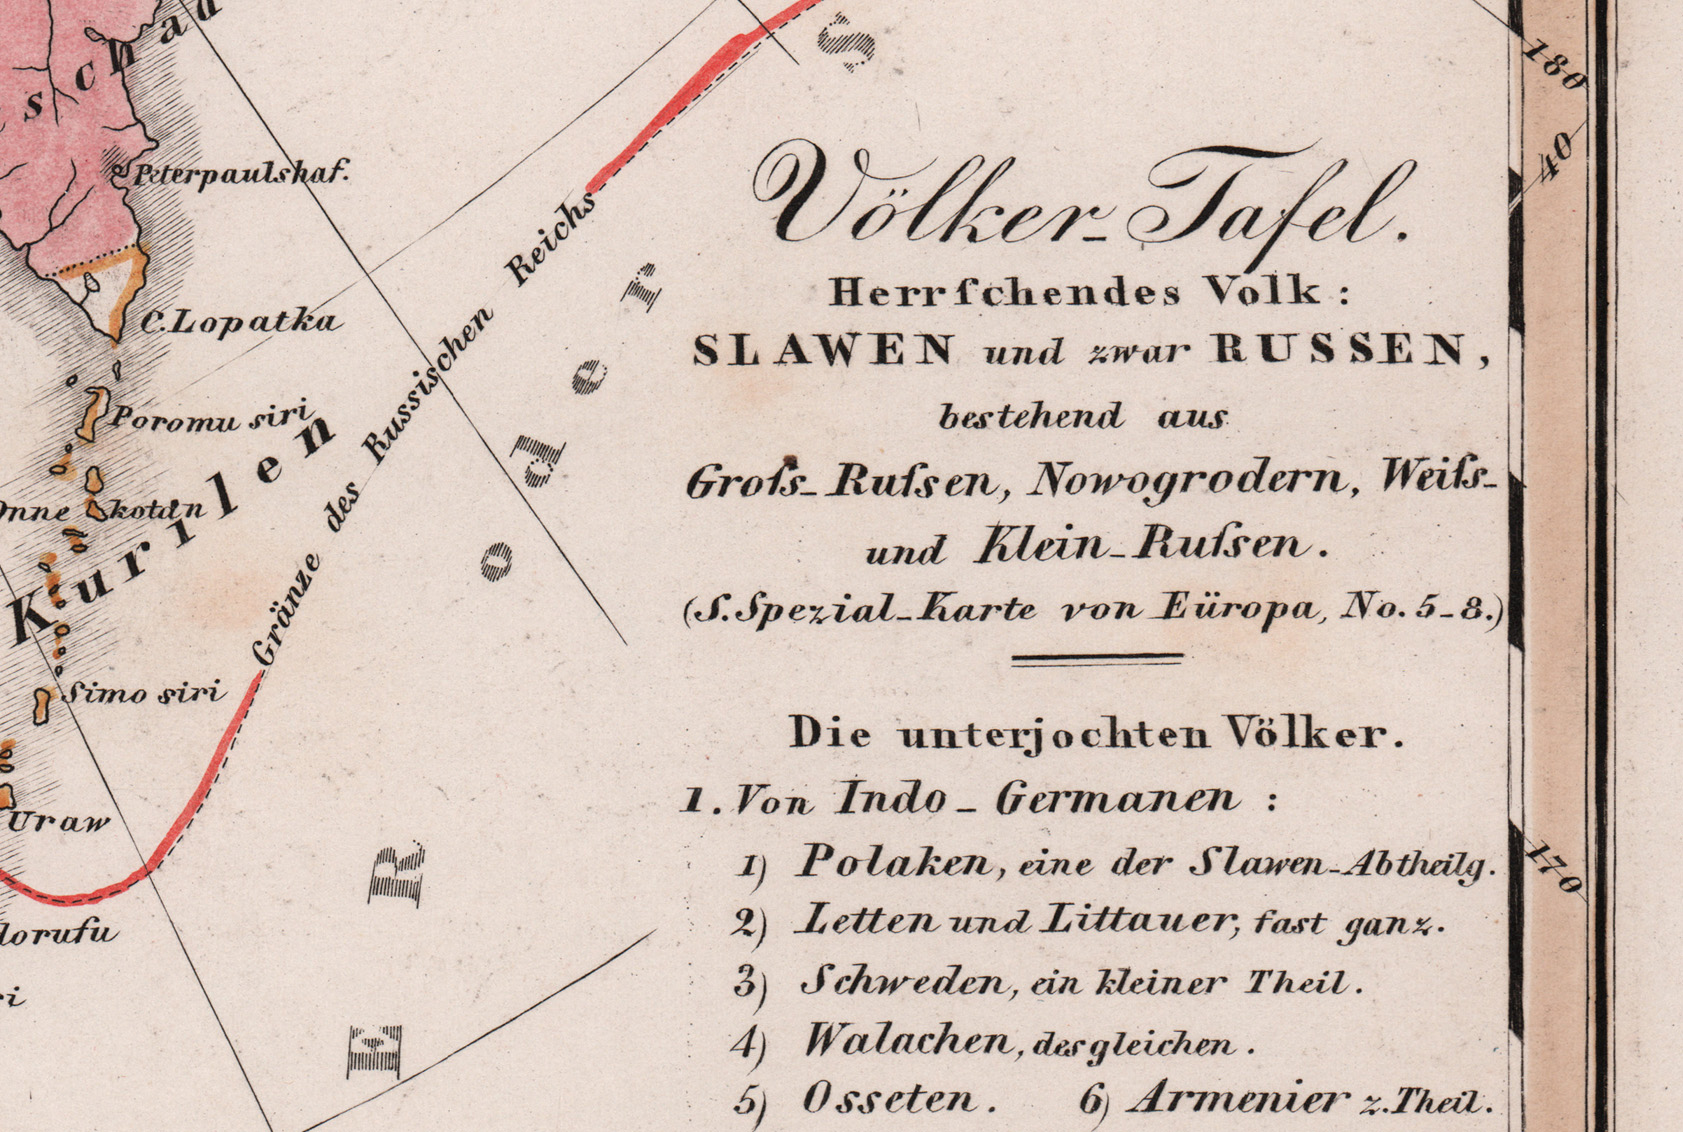 schad
Peterpaulshaf.
C. Lopatka
Poromu siri
Onne kotan
Kurilen
Simo siri
Uraw
Gränze des Russischen Reichs
S
oder
E R
180
40
170
Völker-Tafel.
Herrſchendes Volk:
SLAWEN und zwar RUSSEN,
bestehend aus
Groſs-Ruſsen, Nowogrodern, Weiſs-
und Klein-Ruſsen.
(S. Spezial-Karte von Eüropa, No. 5-8.)
Die unterjochten Völker.
1. Von Indo-Germanen:
1) Polaken, eine der Slawen-Abtheilg.
2) Letten und Littauer, fast ganz.
3) Schweden, ein kleiner Theil.
4) Walachen, desgleichen.
5) Osseten. 6) Armenier z. Theil.